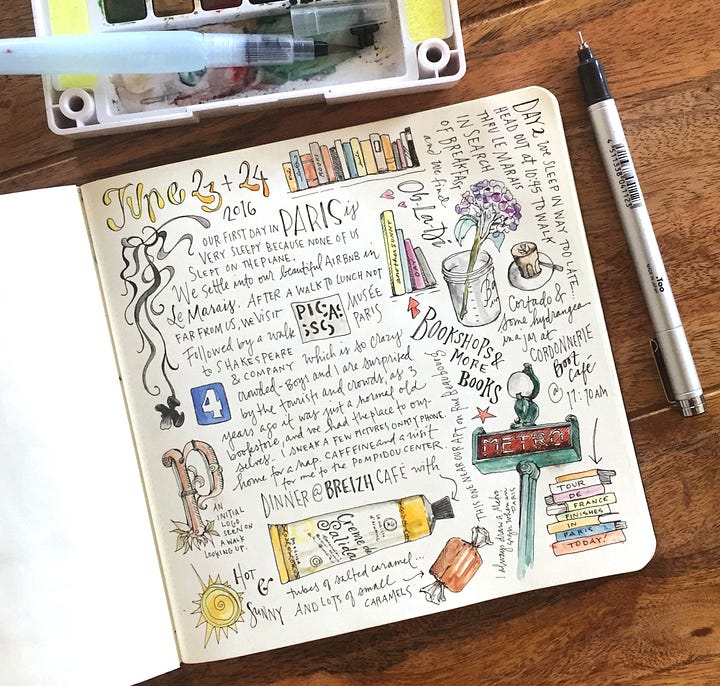 June 23 + 24
2016
OUR FIRST DAY IN PARIS is
VERY SLEEPY BECAUSE NONE OF US
SLEPT ON THE PLANE.
We settle into our beautiful AIRBNB in
Le Marais. AFTER A WALK TO LUNCH NOT
FAR FROM US, WE VISIT
PICASSO
MUSÉE
PARIS
Followed by a walk
to SHAKESPEARE
& COMPANY which is so crazy
crowded - Boys and I are surprised
by the tourists and crowds, as 3
years ago it was just a normal old
bookstore, and we had the place to our-
selves - I SNEAK A FEW PICTURES ON MY PHONE.
home for a nap. CAFFEINE and a visit
for me to the POMPIDOU CENTER.
DINNER @ BREIZH CAFÉ with
4
P
AN
INITIAL
LOGO
SEEN ON
A WALK
LOOKING UP.
Creme de
Salidou
HOT
&
SUNNY
tubes of salted caramel...
AND LOTS of small
CARAMELS
DAY 2 WE SLEEP IN WAY TOO LATE...
HEAD OUT at 10:45 TO WALK
THRU LE MARAIS
IN SEARCH
OF BREAKFAST
and we find
Ob-La-Di
Cortado &
some hydrangea
in a jar at
CORDONNERIE
Boot
Café
@
17:10am
BOOKSHOPS &
MORE
BOOKS
THIS ONE NEAR OUR APT on Rue Beaubourg
METRO
I always draw a Metro
sign when in
PARIS
TOUR
DE
FRANCE
FINISHES
IN
PARIS
TODAY!
.Too
4511338004723